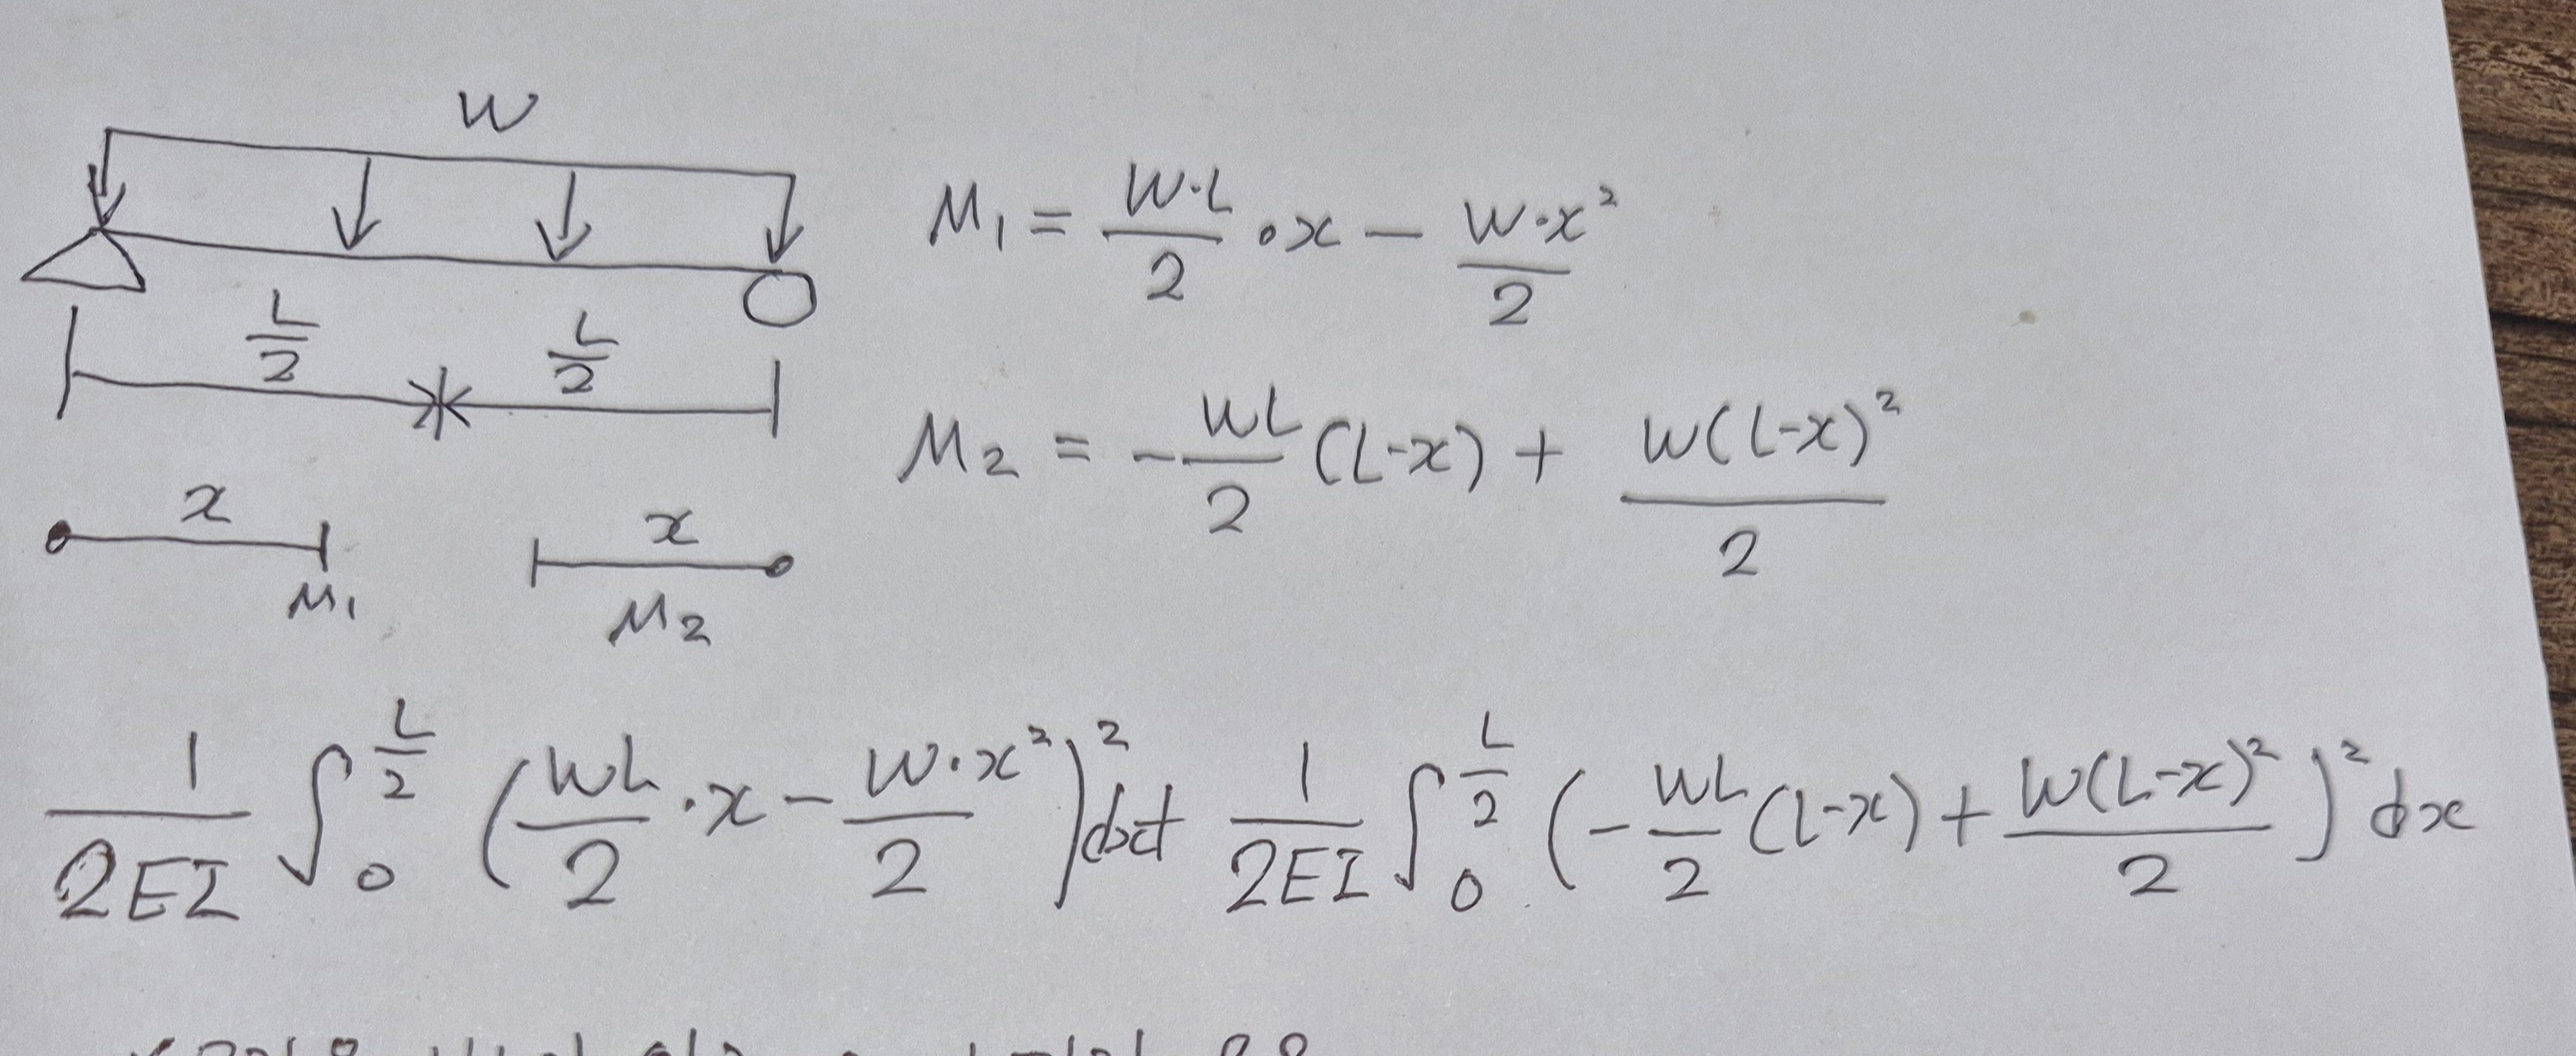 W
L/2 L/2
x x
M₁ M₂
M₁ = W·L/2 · x − W·x²/2
M₂ = −WL/2 (L-x) + W(L-x)²/2
1/2EI ∫₀^(L/2) (WL/2 · x − W·x²/2)² dx + 1/2EI ∫₀^(L/2) (−WL/2 (L-x) + W(L-x)²/2)² dx